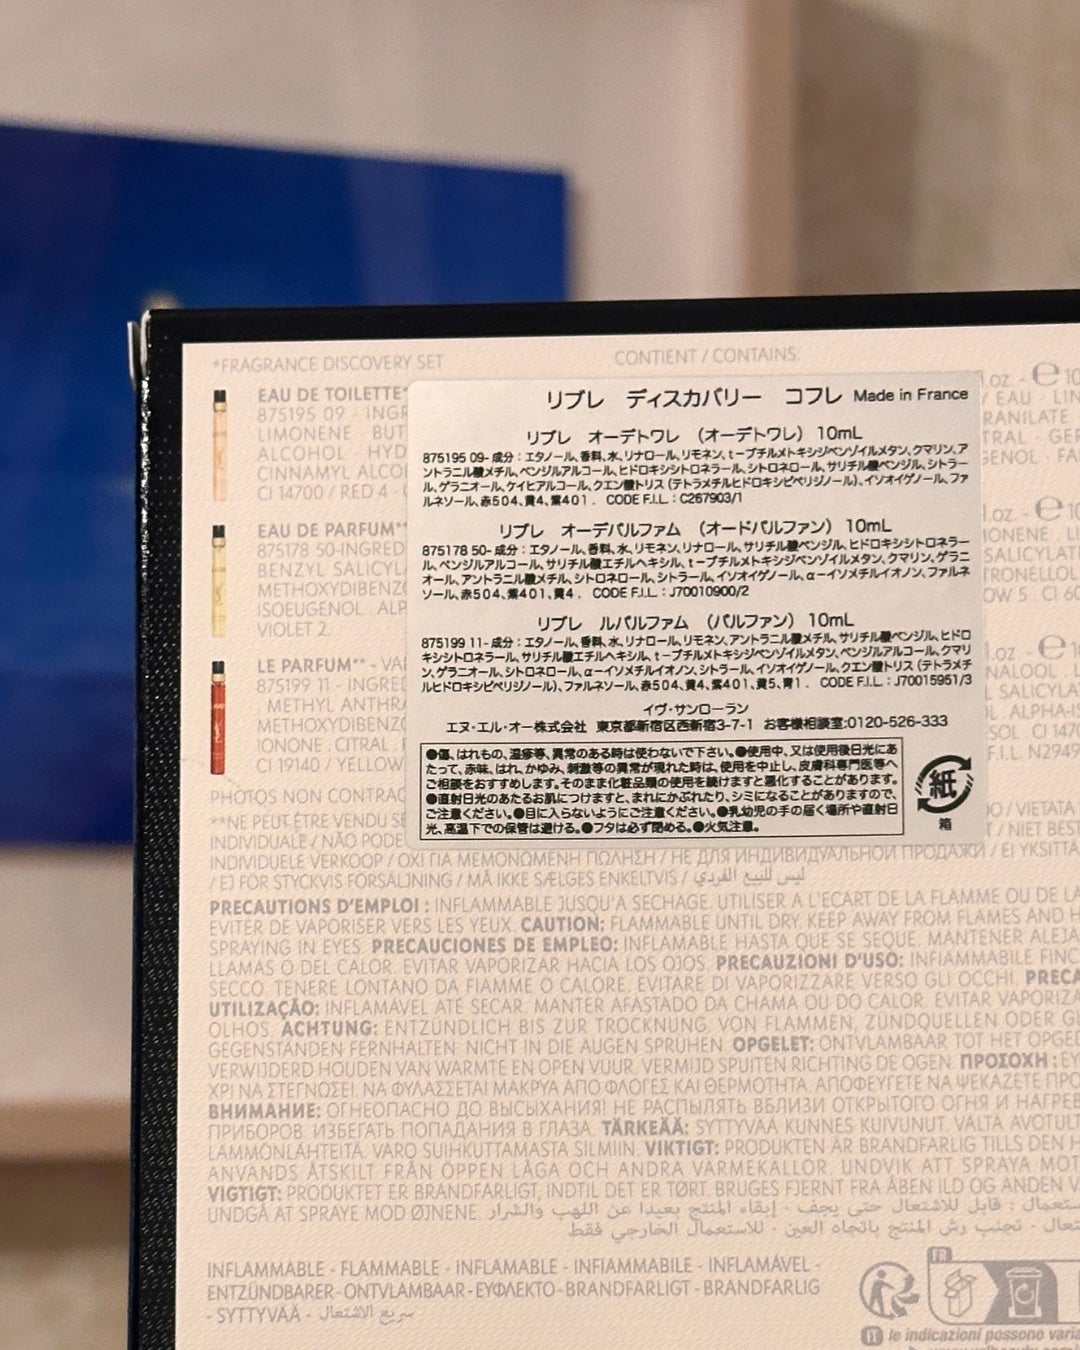 *FRAGRANCE DISCOVERY SET
CONTIENT / CONTAINS:
EAU DE TOILETTE*
875195 09 - INGR
LIMONENE · BUT
ALCOHOL · HYD
CINNAMYL ALCO
CI 14700 / RED 4 -
EAU DE PARFUM**
875178 50-INGRED
BENZYL SALICYL
METHOXYDIBENZ
ISOEUGENOL . ALP
VIOLET 2.
LE PARFUM** - VA
875199 11 - INGRE
METHYL ANTHRA
METHOXYDIBENZ
IONONE . CITRAL .
CI 19140 / YELLOW
リブレ ディスカバリー コフレ Made in France
リブレ オーデトワレ (オーデトワレ) 10mL
875195 09- 成分:エタノール、香料、水、リナロール、リモネン、t-ブチルメトキシジベンゾイルメタン、クマリン、ア
ントラニル酸メチル、ベンジルアルコール、ヒドロキシシトロネラール、シトロネロール、サリチル酸ベンジル、シトラー
ル、ゲラニオール、ケイヒアルコール、クエン酸トリス(テトラメチルヒドロキシピペリジノール)、イソオイゲノール、ファ
ルネソール、赤504、黄4、紫401. CODE F.I.L. : C267903/1
リブレ オーデパルファム (オードパルファン) 10mL
875178 50- 成分:エタノール、香料、水、リモネン、リナロール、サリチル酸ベンジル、ヒドロキシシトロネラー
ル、ベンジルアルコール、サリチル酸エチルヘキシル、t-ブチルメトキシジベンゾイルメタン、クマリン、ゲラニ
オール、アントラニル酸メチル、シトロネロール、シトラール、イソオイゲノール、α-イソメチルイオノン、ファルネ
ソール、赤504、紫401、黄4. CODE F.I.L. : J70010900/2
リブレ ルパルファム (パルファン) 10mL
875199 11- 成分:エタノール、香料、水、リナロール、リモネン、アントラニル酸メチル、サリチル酸ベンジル、ヒドロ
キシシトロネラール、サリチル酸エチルヘキシル、t-ブチルメトキシジベンゾイルメタン、ベンジルアルコール、クマリ
ン、ゲラニオール、シトロネロール、α-イソメチルイオノン、シトラール、イソオイゲノール、クエン酸トリス(テトラメチ
ルヒドロキシピペリジノール)、ファルネソール、赤504、黄4、紫401、黄5、青1. CODE F.I.L. : J70015951/3
イヴ・サンローラン
エヌ・エル・オー株式会社 東京都新宿区西新宿3-7-1 お客様相談室:0120-526-333
●傷、はれもの、湿疹等、異常のある時は使わないで下さい。●使用中、又は使用後日光にあ
たって、赤味、はれ、かゆみ、刺激等の異常が現れた時は、使用を中止し、皮膚科専門医等へ
ご相談をおすすめします。そのまま化粧品類の使用を続けますと悪化することがあります。
●直射日光のあたるお肌につけますと、まれにかぶれたり、シミになることがありますので、
ご注意ください。●目に入らないようにご注意ください。●乳幼児の手の届く場所や直射日
光、高温下での保管は避ける。●フタは必ず閉める。●火気注意。
紙
箱
PHOTOS NON CONTRAC
**NE PEUT ÊTRE VENDU SÉ
INDIVIDUALE / NÃO PODE
INDIVIDUELE VERKOOP / ΟΧΙ ΓΙΑ ΜΕΜΟΝΩΜΕΝΗ ΠΩΛΗΣΗ / НЕ ДЛЯ ИНДИВИДУАЛЬНОЙ ПРОДАЖИ / EI YKSITTÄ
/ EJ FÖR STYCKVIS FÖRSÄLJNING / MÅ IKKE SÆLGES ENKELTVIS / ليس للبيع الفردي
PRECAUTIONS D'EMPLOI : INFLAMMABLE JUSQU'A SECHAGE. UTILISER À L'ECART DE LA FLAMME OU DE LA
EVITER DE VAPORISER VERS LES YEUX. CAUTION: FLAMMABLE UNTIL DRY. KEEP AWAY FROM FLAMES AND H
SPRAYING IN EYES. PRECAUCIONES DE EMPLEO: INFLAMABLE HASTA QUE SE SEQUE. MANTENER ALEJA
LLAMAS O DEL CALOR. EVITAR VAPORIZAR HACIA LOS OJOS. PRECAUZIONI D'USO: INFIAMMABILE FINC
SECCO. TENERE LONTANO DA FIAMME O CALORE. EVITARE DI VAPORIZZARE VERSO GLI OCCHI. PRECA
UTILIZAÇÃO: INFLAMÁVEL ATÉ SECAR. MANTER AFASTADO DA CHAMA OU DO CALOR. EVITAR VAPORIZA
OLHOS. ACHTUNG: ENTZÜNDLICH BIS ZUR TROCKNUNG. VON FLAMMEN, ZÜNDQUELLEN ODER GL
GEGENSTÄNDEN FERNHALTEN. NICHT IN DIE AUGEN SPRÜHEN. OPGELET: ONTVLAMBAAR TOT HET OPGED
VERWIJDERD HOUDEN VAN WARMTE EN OPEN VUUR. VERMIJD SPUITEN RICHTING DE OGEN. ΠΡΟΣΟΧΗ : ΕΥ
ΧΡΙ ΝΑ ΣΤΕΓΝΩΣΕΙ. ΝΑ ΦΥΛΑΣΣΕΤΑΙ ΜΑΚΡΥΑ ΑΠΟ ΦΛΟΓΕΣ ΚΑΙ ΘΕΡΜΟΤΗΤΑ. ΑΠΟΦΕΥΓΕΤΕ ΝΑ ΨΕΚΑΖΕΤΕ ΠΡΟ
ВНИМАНИЕ: ОГНЕОПАСНО ДО ВЫСЫХАНИЯ! НЕ РАСПЫЛЯТЬ ВБЛИЗИ ОТКРЫТОГО ОГНЯ И НАГРЕВ
ПРИБОРОВ. ИЗБЕГАТЬ ПОПАДАНИЯ В ГЛАЗА. TÄRKEÄÄ: SYTTYVÄÄ KUNNES KUIVUNUT. VÄLTÄ AVOTULT
LÄMMÖNLÄHTEITÄ. VARO SUIHKUTTAMASTA SILMIIN. VIKTIGT: PRODUKTEN ÄR BRANDFARLIG TILLS DEN H
ANVÄNDS ÅTSKILT FRÅN ÖPPEN LÅGA OCH ANDRA VÄRMEKÄLLOR. UNDVIK ATT SPRAYA MOT
VIGTIGT: PRODUKTET ER BRANDFARLIGT, INDTIL DET ER TØRT. BRUGES FJERNT FRA ÅBEN ILD OG ANDEN V
UNDGÅ AT SPRAYE MOD ØJNENE. ستعمال : قابل للاشتعال حتى يجف . إبقاء المنتج بعيدا عن اللهب والشرار
تعال . تجنب رش المنتج باتجاه العين . للاستعمال الخارجي فقط
INFLAMMABLE - FLAMMABLE - INFLAMABLE - INFIAMMABILE - INFLAMÁVEL -
ENTZÜNDBARER - ONTVLAMBAAR - ΕΥΦΛΕΚΤΟ - BRANDFARLIGT - BRANDFARLIG
- SYTTYVÄÄ - سريع الاشتعال
FR
IT le indicazioni possono varia